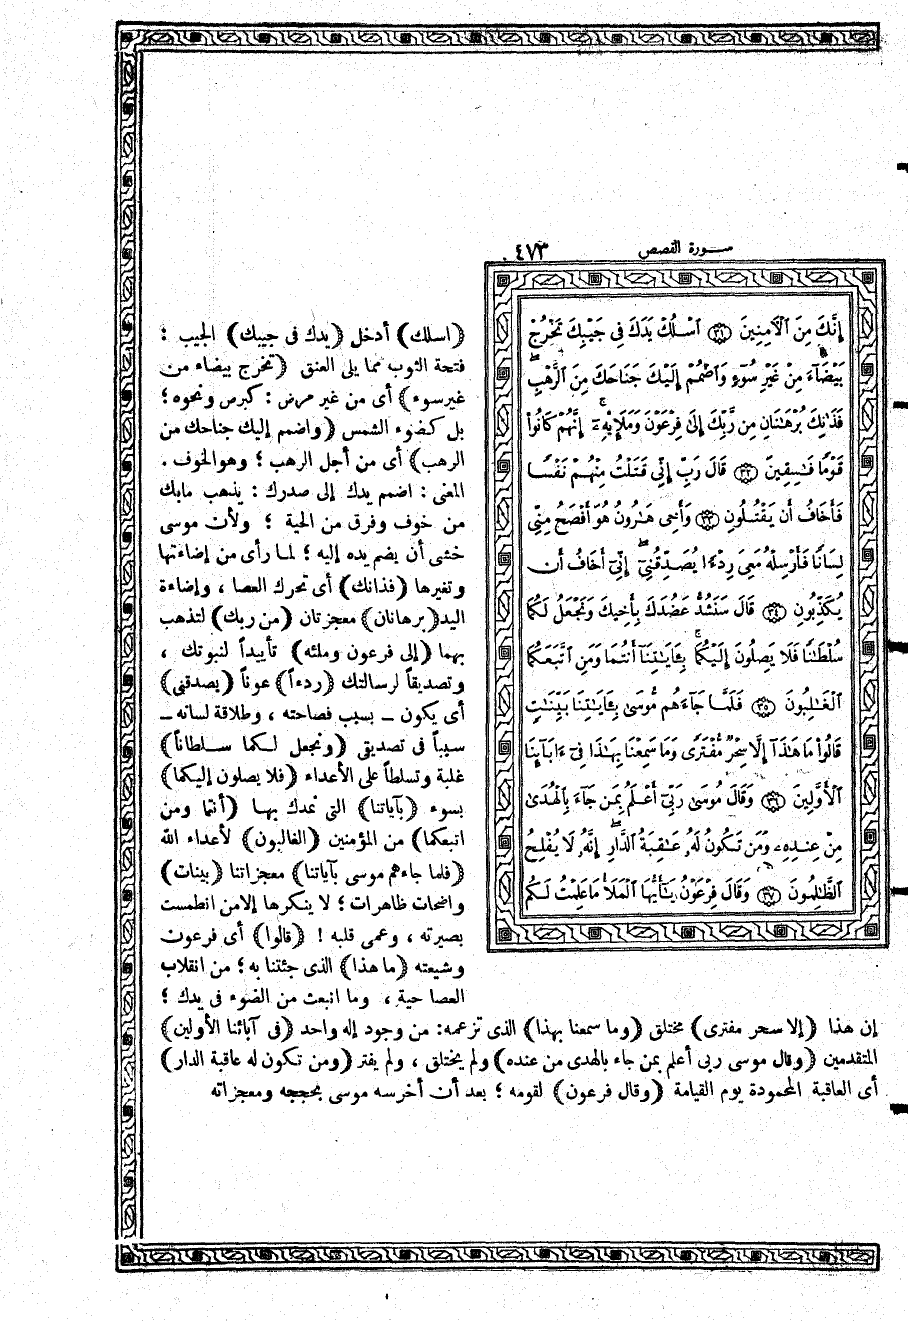 سورة القصص ٤٧٣
إِنَّكَ مِنَ ٱلْآمِنِينَ ﴿٣١﴾ ٱسْلُكْ يَدَكَ فِى جَيْبِكَ تَخْرُجْ
بَيْضَآءَ مِنْ غَيْرِ سُوٓءٍ وَٱضْمُمْ إِلَيْكَ جَنَاحَكَ مِنَ ٱلرَّهْبِ
فَذَٰنِكَ بُرْهَٰنَانِ مِن رَّبِّكَ إِلَىٰ فِرْعَوْنَ وَمَلَإِيْهِۦٓ إِنَّهُمْ كَانُوا۟
قَوْمًا فَٰسِقِينَ ﴿٣٢﴾ قَالَ رَبِّ إِنِّى قَتَلْتُ مِنْهُمْ نَفْسًا
فَأَخَافُ أَن يَقْتُلُونِ ﴿٣٣﴾ وَأَخِى هَٰرُونُ هُوَ أَفْصَحُ مِنِّى
لِسَانًا فَأَرْسِلْهُ مَعِىَ رِدْءًا يُصَدِّقُنِىٓ إِنِّىٓ أَخَافُ أَن
يُكَذِّبُونِ ﴿٣٤﴾ قَالَ سَنَشُدُّ عَضُدَكَ بِأَخِيكَ وَنَجْعَلُ لَكُمَا
سُلْطَٰنًا فَلَا يَصِلُونَ إِلَيْكُمَا بِـَٔايَٰتِنَآ أَنتُمَا وَمَنِ ٱتَّبَعَكُمَا
ٱلْغَٰلِبُونَ ﴿٣٥﴾ فَلَمَّا جَآءَهُم مُّوسَىٰ بِـَٔايَٰتِنَا بَيِّنَٰتٍ
قَالُوا۟ مَا هَٰذَآ إِلَّا سِحْرٌ مُّفْتَرًى وَمَا سَمِعْنَا بِهَٰذَا فِىٓ ءَابَآئِنَا
ٱلْأَوَّلِينَ ﴿٣٦﴾ وَقَالَ مُوسَىٰ رَبِّىٓ أَعْلَمُ بِمَن جَآءَ بِٱلْهُدَىٰ
مِنْ عِندِهِۦ وَمَن تَكُونُ لَهُۥ عَٰقِبَةُ ٱلدَّارِ إِنَّهُۥ لَا يُفْلِحُ
ٱلظَّٰلِمُونَ ﴿٣٧﴾ وَقَالَ فِرْعَوْنُ يَٰٓأَيُّهَا ٱلْمَلَأُ مَا عَلِمْتُ لَكُم
(اسلك) أدخل (يدك فى جيبك) الجيب :
فتحة الثوب مما يلى العنق (تخرج بيضاء من
غير سوء) أى من غير مرض : كبرص ونحوه ؛
بل كضوء الشمس (واضمم إليك جناحك من
الرهب) أى من أجل الرهب ؛ وهو الخوف .
المعنى : اضمم يدك إلى صدرك : يذهب مابك
من خوف وفرق من الحية ؛ ولأن موسى
خشى أن يضم يده إليه ؛ لما رأى من إضاءتها
وتغيرها (فذانك) أى تحرك العصا ، وإضاءة
اليد (برهانان) معجزتان (من ربك) لتذهب
بهما (إلى فرعون وملئه) تأييداً لنبوتك ،
وتصديقاً لرسالتك (ردءاً) عوناً (يصدقنى)
أى يكون ــ بسبب فصاحته ، وطلاقة لسانه ــ
سبباً فى تصديقى (ونجعل لكما سلطاناً)
غلبة وتسلطاً على الأعداء (فلا يصلون إليكما)
بسوء (بآياتنا) التى نمدك بها (أنتما ومن
اتبعكما) من المؤمنين (الغالبون) لأعداء الله
(فلما جاءهم موسى بآياتنا) معجزاتنا (بينات)
واضحات ظاهرات ؛ لا ينكرها إلا من انطمست
بصيرته ، وعمى قلبه ! (قالوا) أى فرعون
وشيعته (ما هذا) الذى جئتنا به ؛ من انقلاب
العصا حية ، وما انبعث من الضوء فى يدك ؛
إن هذا (إلا سحر مفترى) مختلق (وما سمعنا بهذا) الذى تزعمه: من وجود إله واحد (فى آبائنا الأولين)
المتقدمين (وقال موسى ربى أعلم بمن جاء بالهدى من عنده) ولم يختلق ، ولم يفتر (ومن تكون له عاقبة الدار)
أى العاقبة المحمودة يوم القيامة (وقال فرعون) لقومه ؛ بعد أن أخرسه موسى بحججه ومعجزاته